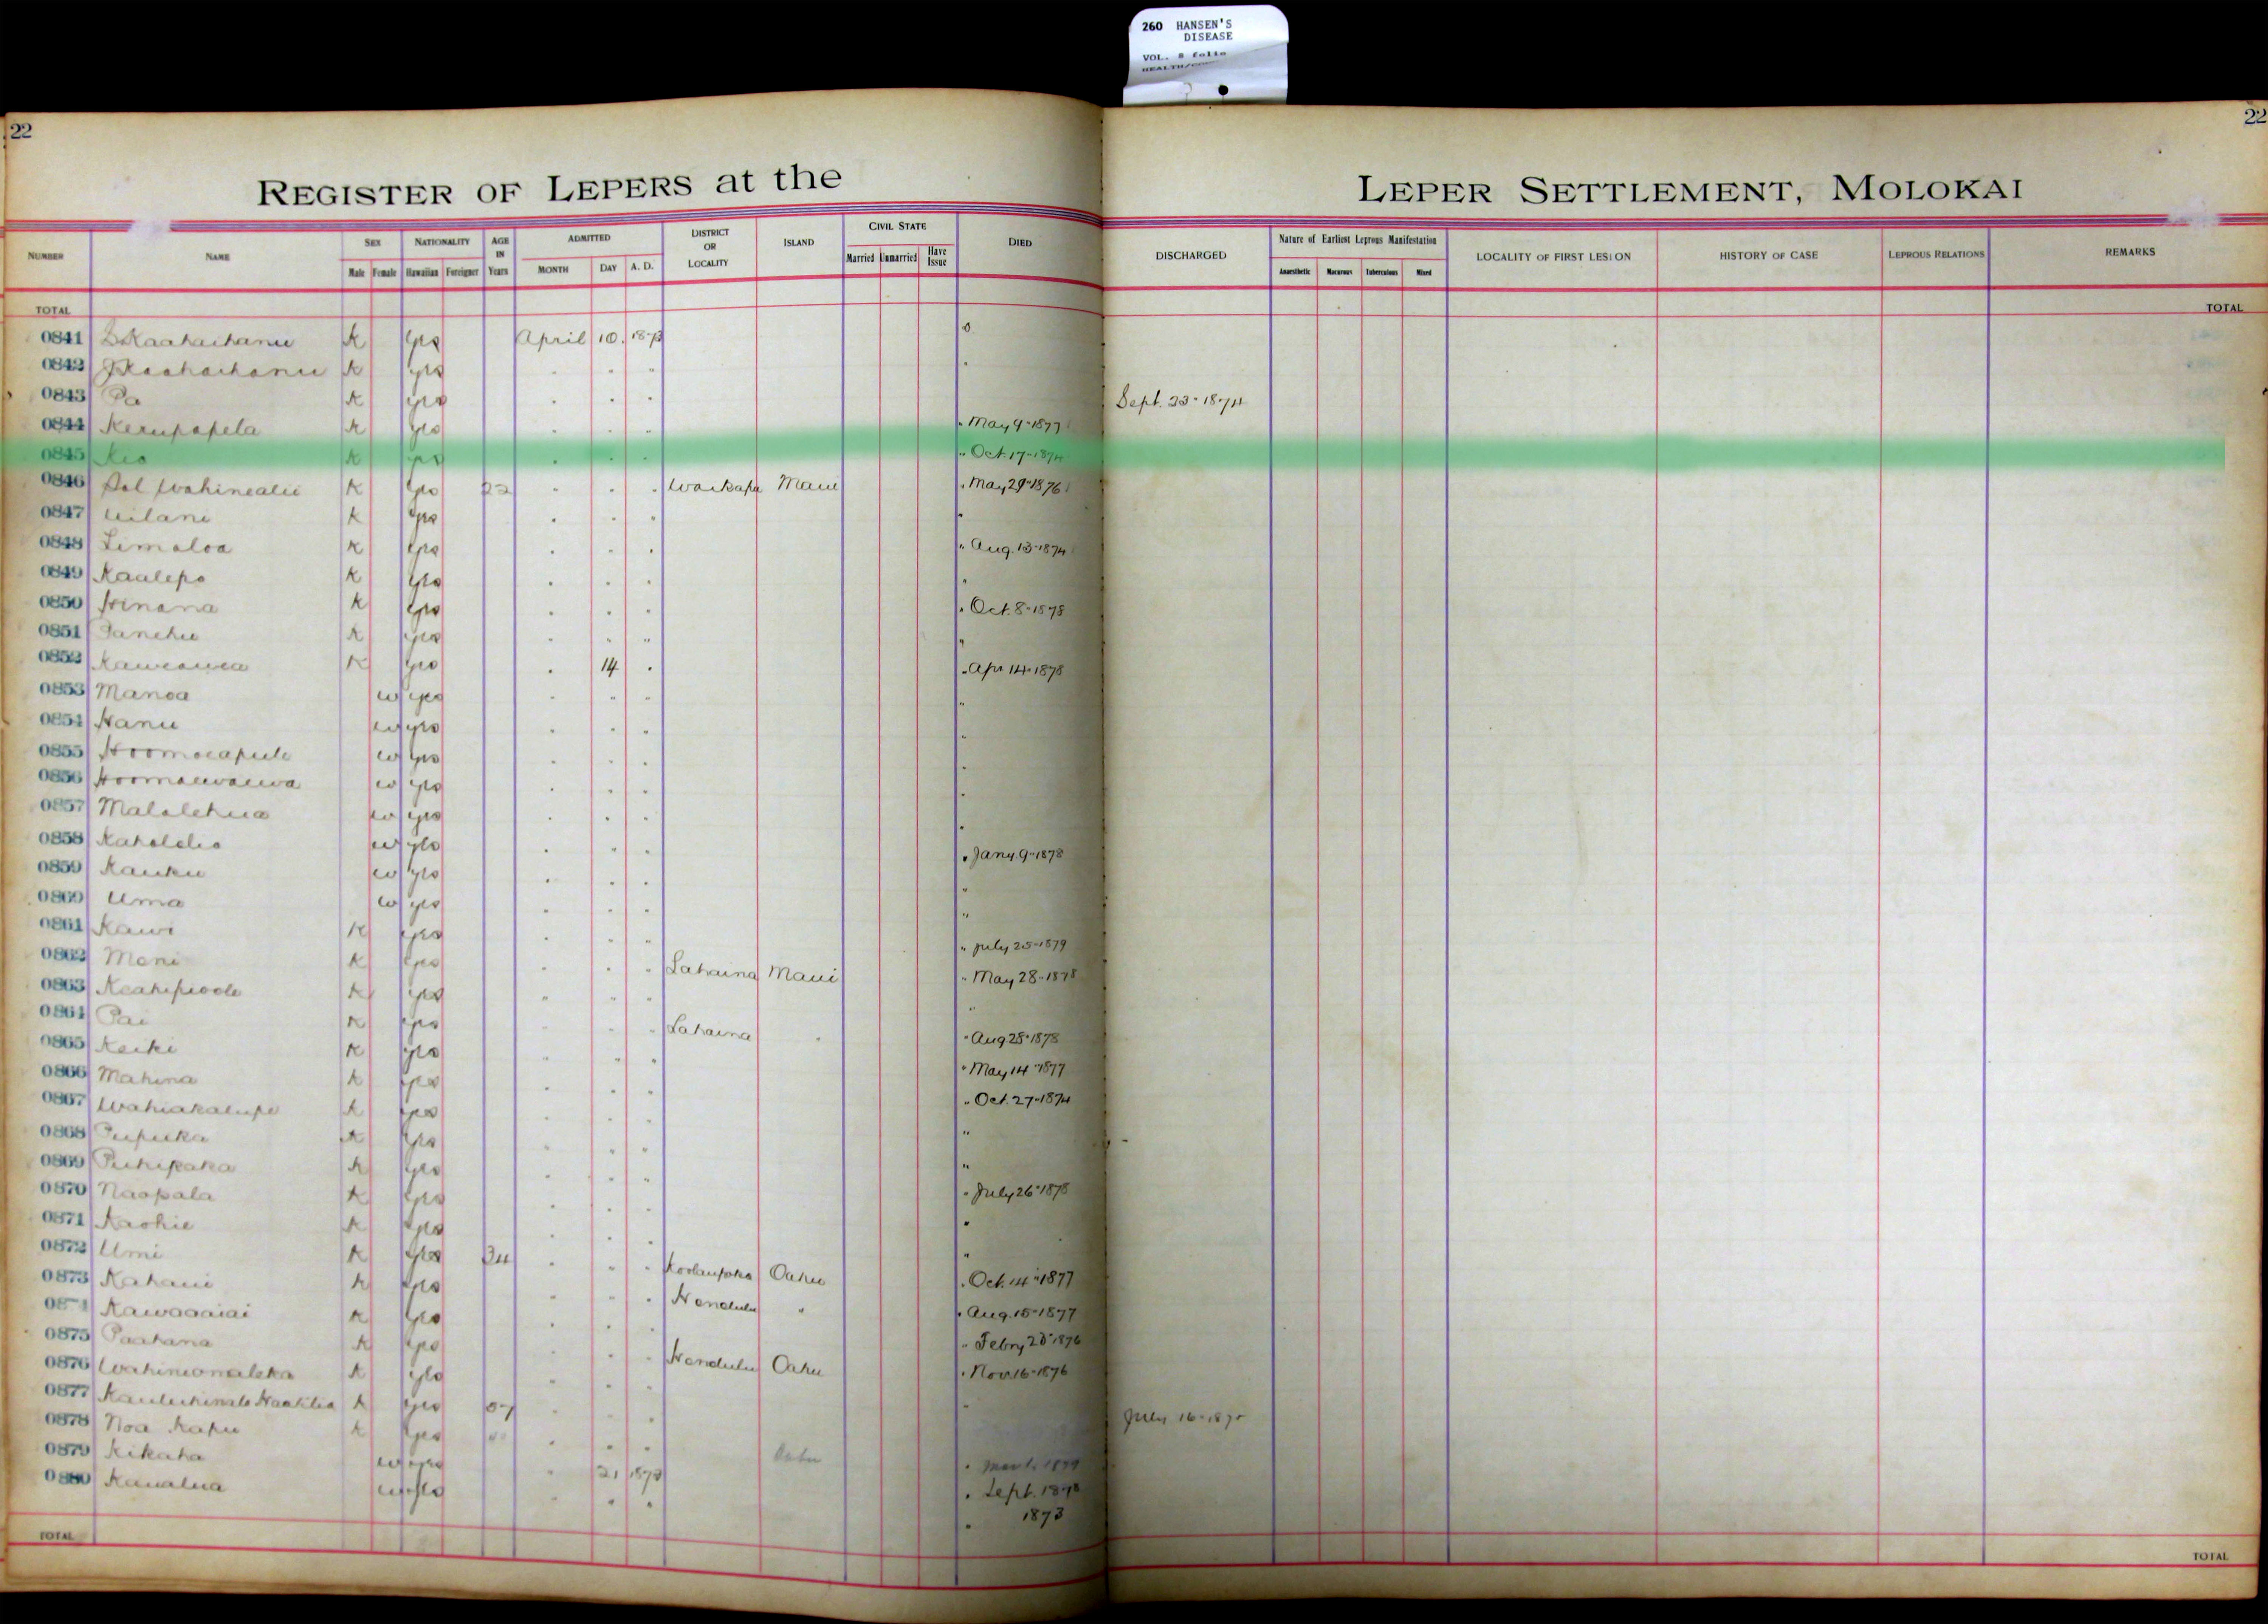 260 HANSEN'S
DISEASE
VOL. 8 folio
22
22
REGISTER OF LEPERS at the
LEPER SETTLEMENT, MOLOKAI
NUMBER NAME SEX Male Female NATIONALITY Hawaiian Foreigner AGE IN Years ADMITTED MONTH DAY A. D. DISTRICT OR LOCALITY ISLAND CIVIL STATE Married Unmarried Have Issue DIED
DISCHARGED Nature of Earliest Leprous Manifestation Anaesthetic Macurous Tuberculous Mixed LOCALITY OF FIRST LESION HISTORY OF CASE LEPROUS RELATIONS REMARKS
TOTAL TOTAL
0841 K yes April 10. 1873
0842 K yes
0843 Pa K yes Sept. 23-1874
0844 K yes May 9-1877
0845 Keo K yes Oct. 17-1874
0846 K yes 22 Waikapu Maui May 29-1876
0847 Leilani K yes
0848 Limaloa K yes Aug. 13-1874
0849 Kaalepo K yes
0850 Hinana K yes Oct. 8-1878
0851 K yes
0852 Kaweawea K yes 14 Apr 14-1878
0853 Manoa w yes
0854 Hanu w yes
0855 w yes
0856 Hoomauwauwa w yes
0857 Malolehua w yes
0858 Kahalelio w yes Jany. 9-1878
0859 Kauku w yes
0860 Uma w yes
0861 Kawi K yes July 25-1879
0862 Meni K yes Lahaina Maui May 28-1878
0863 K yes
0864 Pai K yes Lahaina Aug 28-1878
0865 Keiki K yes May 14-1877
0866 Mahina K yes Oct. 27-1874
0867 Wahiakalupe K yes
0868 Pupuka K yes
0869 Puhipaka K yes July 26-1878
0870 Naopala K yes
0871 Kaohie K yes
0872 Umi K yes 34 Koolaupoko Oahu Oct. 14-1877
0873 Kahaui K yes Honolulu " Aug. 15-1877
0874 Kawaaaiai K yes Febry 28-1876
0875 Paahana K yes Honolulu Oahu Nov. 16-1876
0876 K yes
0877 K yes July 16-187
0878 Noa Kapu K yes Oahu 1879
0879 Kikaha w yes 21 1873 Sept. 1878
0880 Kanalua w yes 1873
TOTAL TOTAL